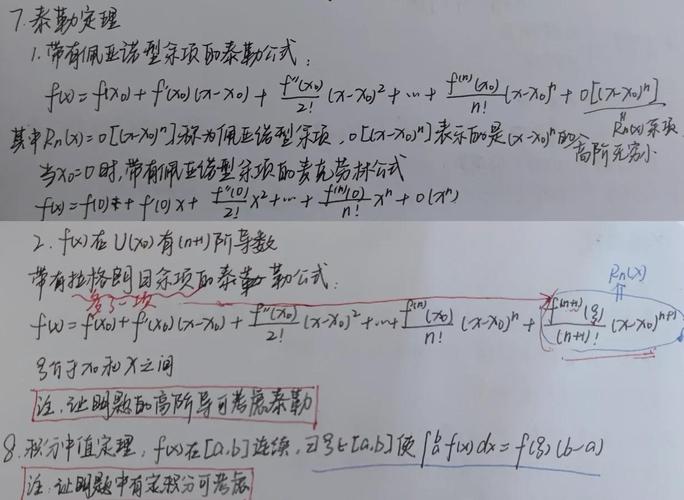 7.泰勒定理
1.带有佩亚诺型余项的泰勒公式:
f(x)=f(x₀)+f'(x₀)(x-x₀)+f''(x₀)/2!(x-x₀)²+…+f⁽ⁿ⁾(x₀)/n!(x-x₀)ⁿ+o[(x-x₀)ⁿ]
Rn(x)余项
其中Rn(x)=o[(x-x₀)ⁿ]称为佩亚诺型余项,o[(x-x₀)ⁿ]表示的是(x-x₀)ⁿ的高阶无穷小
当x₀=0时,带有佩亚诺型余项的麦克劳林公式
f(x)=f(0)+f'(0)x+f''(0)/2!x²+…+f⁽ⁿ⁾(0)/n!xⁿ+o(xⁿ)
2.f(x)在U(x₀)有(n+1)阶导数
带有拉格朗日余项的泰勒公式:
Rn(x)
多了一项
f(x)=f(x₀)+f'(x₀)(x-x₀)+f''(x₀)/2!(x-x₀)²+…+f⁽ⁿ⁾(x₀)/n!(x-x₀)ⁿ+f⁽ⁿ⁺¹⁾(ξ)/(n+1)!(x-x₀)ⁿ⁺¹
ξ介于x₀和x之间
注:证明题的高阶导可考虑泰勒
8.积分中值定理,f(x)在[a,b]连续,∃ξ∈[a,b]使∫ₐᵇf(x)dx=f(ξ)(b-a)
注:证明题中有定积分可考虑